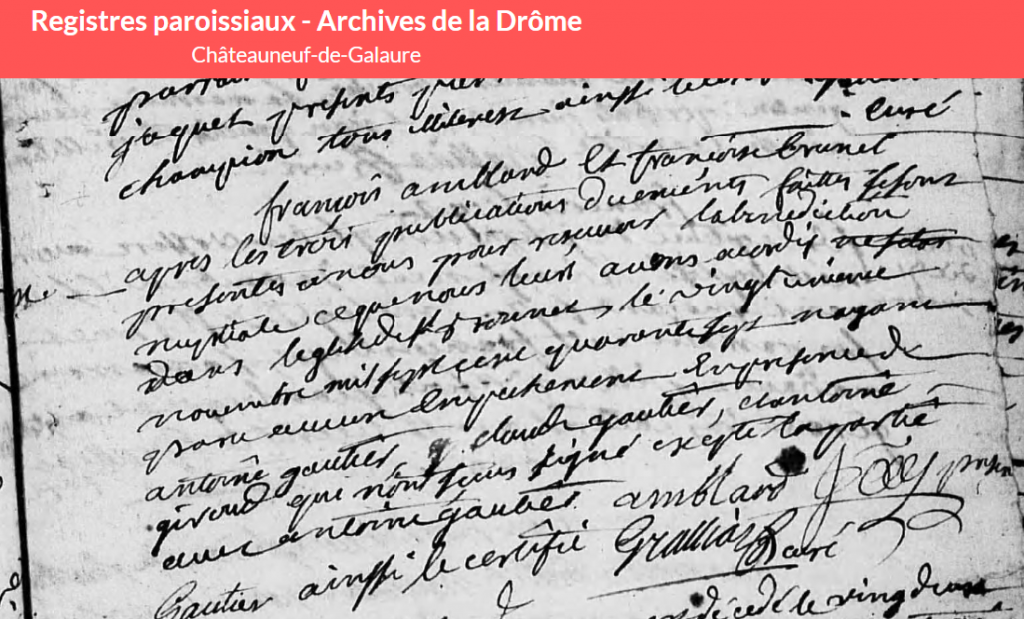 Registres paroissiaux - Archives de la Drôme
Châteauneuf-de-Galaure
jaquet presents
champion tous illiteres ainssi
curé
françois amblard Et françoise brunet
apres les trois publications duements faittes se sont
presentes a nous pour resevoir la benediction
nuptiale ce que nous leurs avons acordés
dans leglise de st le vingt unieme
novembre mil sept cent quarante sept nayant
paru aucun Empechement En presence de
antoine gautier, claude gautier, antoine
giroud qui n'ont sceus signé excepté la partie
avec antoine gautier amblard
Gautier ainssi le certifie curé
décédé le vingt